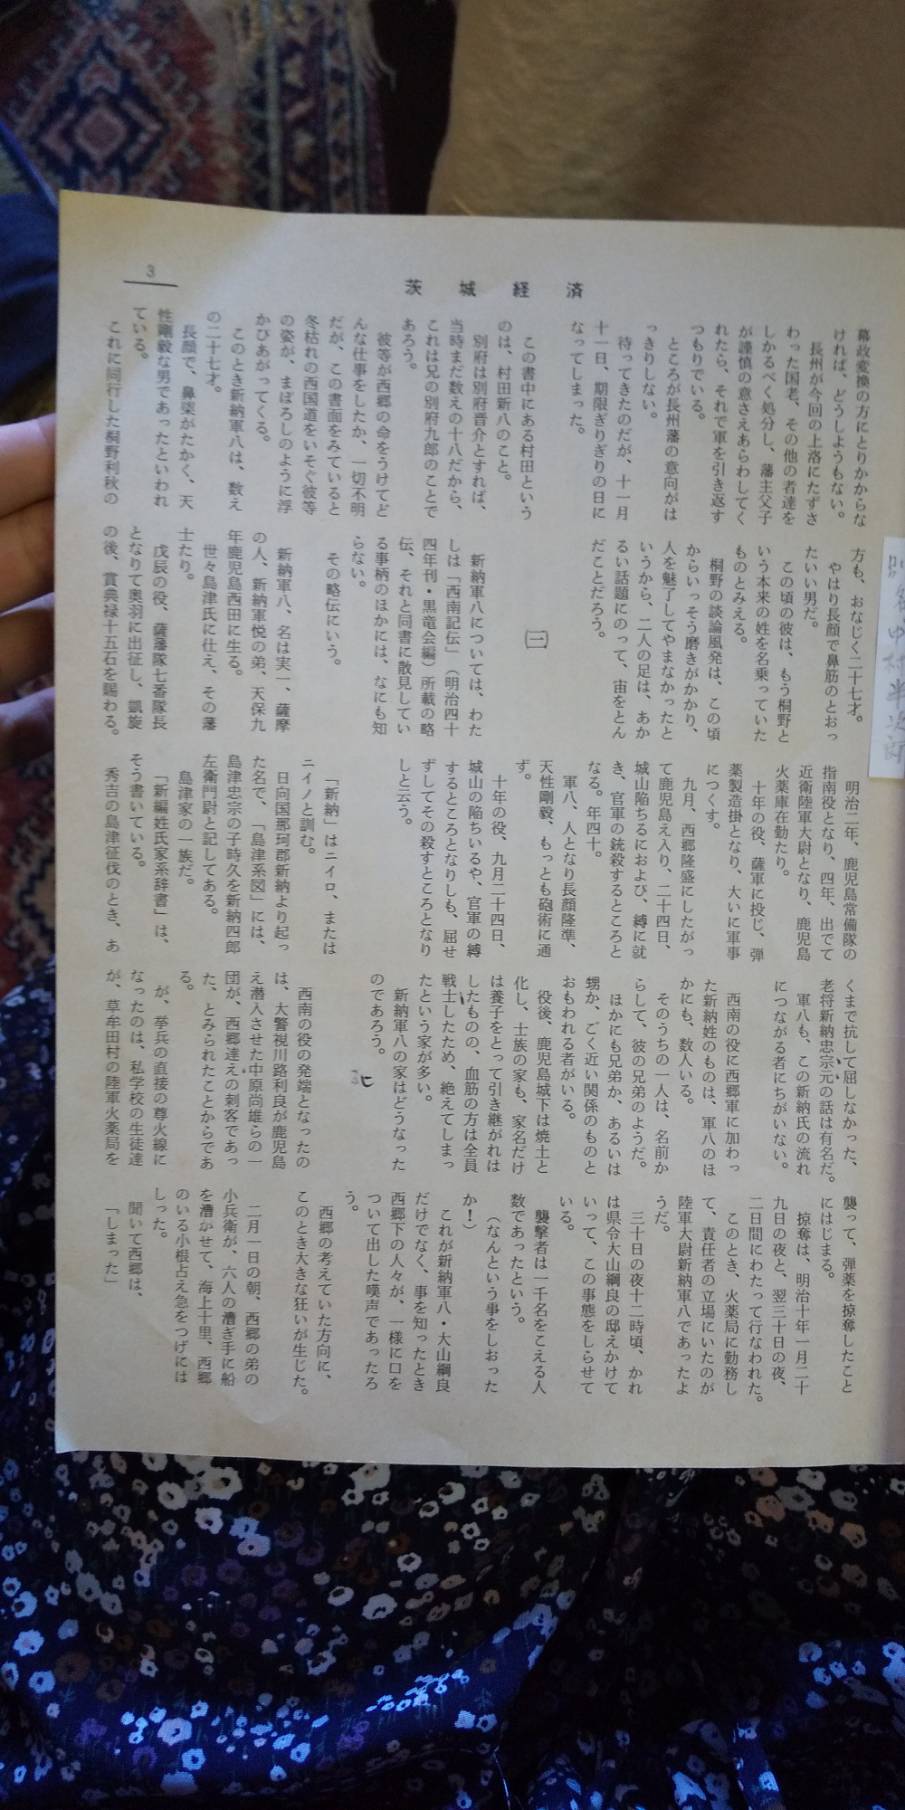 3
茨城経済
幕政変換の方にとりかからな
ければ、どうしようもない。
長州が今回の上洛にたずさ
わった国老、その他の者達を
しかるべく処分し、藩主父子
が謹慎の意さえあらわしてく
れたら、それで軍を引き返す
つもりでいる。
ところが長州藩の意向がは
っきりしない。
待ってきたのだが、十一月
十一日、期限ぎりぎりの日に
なってしまった。
この書中にある村田という
のは、村田新八のこと。
別府は別府晋介とすれば、
当時まだ数えの十八だから、
これは兄の別府九郎のことで
あろう。
彼等が西郷の命をうけてど
んな仕事をしたか、一切不明
だが、この書面をみていると
冬枯れの西国道をいそぐ彼等
の姿が、まぼろしのように浮
かびあがってくる。
このとき新納軍八は、数え
の二十七才。
長顔で、鼻梁がたかく、天
性剛毅な男であったといわれ
ている。
これに同行した桐野利秋の
方も、おなじく二十七才。
やはり長顔で鼻筋のとおっ
たいい男だ。
この頃の彼は、もう桐野と
いう本来の姓を名乗っていた
ものとみえる。
桐野の談論風発は、この頃
からいっそう磨きがかかり、
人を魅了してやまなかったと
いうから、二人の足は、あか
るい話題にのって、宙をとん
だことだろう。
㈢
新納軍八については、わた
しは「西南記伝」(明治四十
四年刊・黒竜会編)所載の略
伝、それと同書に散見してい
る事柄のほかには、なにも知
らない。
その略伝にいう。
新納軍八、名は実一、薩摩
の人、新納軍悦の弟、天保九
年鹿児島西田に生る。
世々島津氏に仕え、その藩
士たり。
戊辰の役、薩藩隊七番隊長
となりて奥羽に出征し、凱旋
の後、賞典禄十五石を賜わる。
明治二年、鹿児島常備隊の
指南役となり、四年、出でて
近衛陸軍大尉となり、鹿児島
火薬庫在勤たり。
十年の役、薩軍に投じ、弾
薬製造掛となり、大いに軍事
につくす。
九月、西郷隆盛にしたがっ
て鹿児島え入り、二十四日、
城山陥ちるにおよび、縛に就
き、官軍の銃殺するところと
なる。年四十。
軍八、人となり長顔隆準、
天性剛毅、もっとも砲術に通
ず。
十年の役、九月二十四日、
城山の陥ちいるや、官軍の縛
するところとなりしも、屈せ
ずしてその殺すところとなり
しと云う。
「新納」はニイロ、または
ニイノと訓む。
日向国那珂郡新納より起っ
た名で、「島津系図」には、
島津忠宗の子時久を新納四郎
左衛門尉と記してある。
島津家の一族だ。
「新編姓氏家系辞書」は、
そう書いている。
秀吉の島津征伐のとき、あ
くまで抗して屈しなかった、
老将新納忠宗元の話は有名だ。
軍八も、この新納氏の流れ
につながる者にちがいない。
西南の役に西郷軍に加わっ
た新納姓のものは、軍八のほ
かにも、数人いる。
そのうちの一人は、名前か
らして、彼の兄弟のようだ。
ほかにも兄弟か、あるいは
甥か、ごく近い関係のものと
おもわれる者がいる。
役後、鹿児島城下は焼土と
化し、士族の家も、家名だけ
は養子をとって引き継がれは
したものの、血筋の方は全員
戦士したため、絶えてしまっ
たという家が多い。
新納軍八の家はどうなった
のであろう。
西南の役の発端となったの
は、大警視川路利良が鹿児島
え潜入させた中原尚雄らの一
団が、西郷達えの刺客であっ
た、とみられたことからであ
る。
が、挙兵の直接の導火線に
なったのは、私学校の生徒達
が、草牟田村の陸軍火薬局を
襲って、弾薬を掠奪したこと
にはじまる。
掠奪は、明治十年一月二十
九日の夜と、翌三十日の夜、
二日間にわたって行なわれた。
このとき、火薬局に勤務し
て、責任者の立場にいたのが
陸軍大尉新納軍八であったよ
うだ。
三十日の夜十二時頃、かれ
は県令大山綱良の邸えかけて
いって、この事態をしらせて
いる。
襲撃者は一千名をこえる人
数であったという。
(なんという事をしおった
か!)
これが新納軍八・大山綱良
だけでなく、事を知ったとき
西郷下の人々が、一様に口を
ついて出した嘆声であったろ
う。
西郷の考えていた方向に、
このとき大きな狂いが生じた。
二月一日の朝、西郷の弟の
小兵衛が、六人の漕ぎ手に船
を漕かせて、海上十里、西郷
のいる小根占え急をつげには
しった。
聞いて西郷は、
「しまった」
別名 中村半次郎